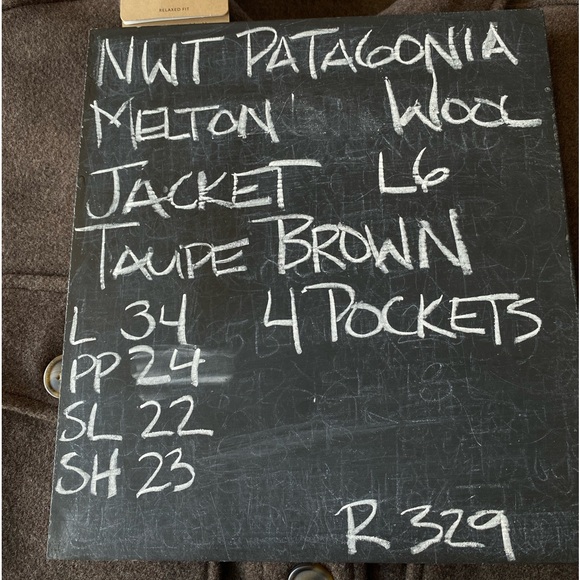 RELAXED FIT
NWT PATAGONIA
MELTON WOOL
JACKET LG
TAUPE BROWN
L 34 4 POCKETS
PP 24
SL 22
SH 23
R 329